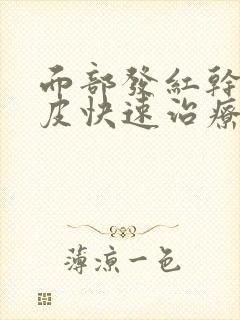 面部發紅幹
皮快速治療
薄涼一色